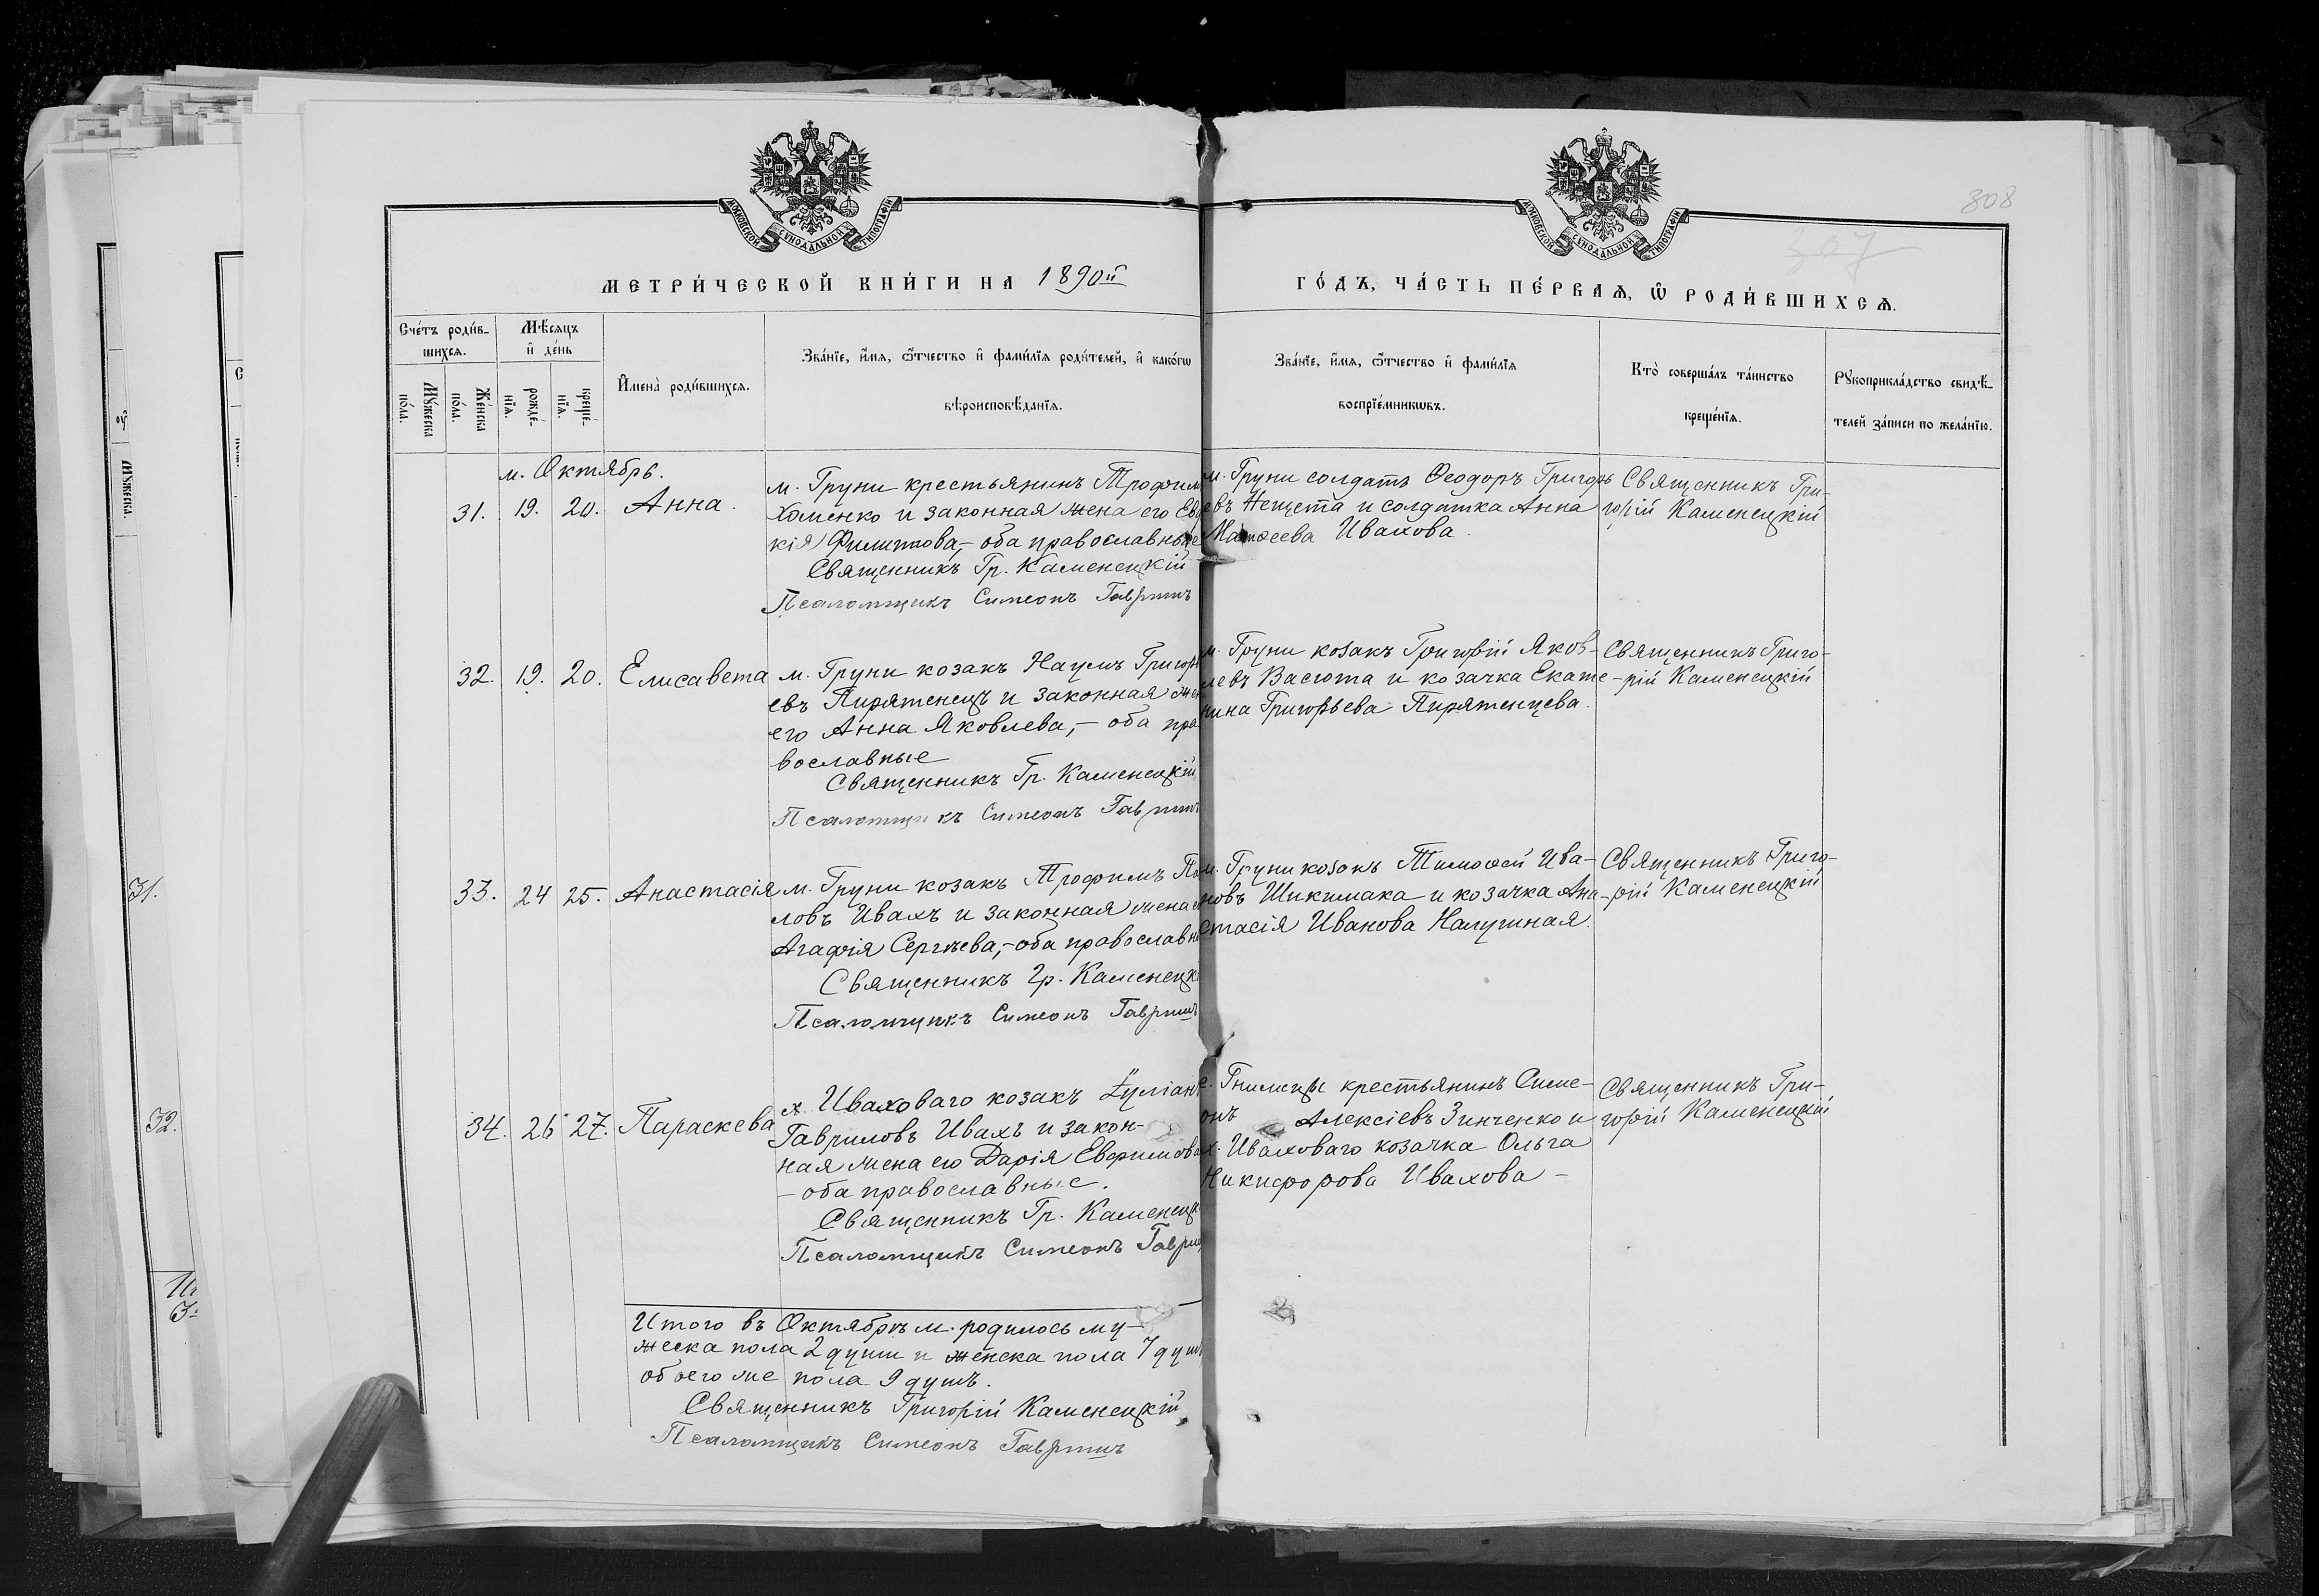 808
307
МОСКОВСКОЙ СУНОДАЛЬНОЙ ТИПОГРАФІИ
МОСКОВСКОЙ СУНОДАЛЬНОЙ ТИПОГРАФІИ
МЕТРИ́ЧЕСКОЙ КНИ́ГИ НА 1890й
ГО́ДЪ, ЧА́СТЬ ПЕ́РВАѦ, Ѡ РОДИ́ВШИХСѦ.
Сче́тъ роди́в-
шихсѧ.
Мѣ́сѧцъ
и҆ де́нь
Мꙋ́жеска
по́ла.
Же́нска
по́ла.
рожде́-
нїѧ.
креще́-
нїѧ.
И҆мена̀ роди́вшихсѧ.
Зва́нїе, и҆́мѧ, ѻ҆́тчество и҆ фами́лїѧ роди́телей, и҆ како́гѡ
вѣроисповѣ́данїѧ.
Зва́нїе, и҆́мѧ, ѻ҆́тчество и҆ фами́лїѧ
воспрїе́мникѡвъ.
Кто̀ соверша́лъ та́инство
креще́нїѧ.
Рꙋкоприкла́дство свидѣ́-
телей за́писи по жела́нїю.
м. Октябрь.
31. 19. 20. Анна.
м. Груни крестьянинъ Трофим
Хоменко и законная жена его Ев
кія Филиппова,- оба православные
Священникъ Гр. Каменецкій
Псаломщикъ Симеонъ Гавришъ
м. Груни солдатъ Ѳеодоръ Григорь
евъ Нещета и солдатка Анна
Матѳеева Ивахова.
Священникъ Гри-
горій Каменецкій
32. 19. 20. Елисавета
м. Груни козакъ Наумъ Григорь
евъ Пирятенецъ и законная жен
его Анна Яковлева,- оба пра
вославные
Священникъ Гр. Каменецкій
Псаломщикъ Симеонъ Гавришъ
м. Груни козакъ Григорій Яков-
левъ Васюта и козачка Екате-
рина Григорьева Пирятенцева.
Священникъ Григо-
рій Каменецкій
33. 24 25. Анастасія
м. Груни козакъ Трофимъ Па
ловъ Ивахъ и законная жена
Агафія Сергѣева,- оба православн
Священникъ Гр. Каменецкі
Псаломщикъ Симеонъ Гавришъ
м. Груни козакъ Тимоѳей Ива-
новъ Шикимака и козачка Ана-
стасія Иванова
Священникъ Григо-
рій Каменецкій
34. 26 27. Параскева
х. Иваховаго козакъ Іуліанъ
Гавриловъ Ивахъ и закон-
ная жена его Дарія Евфимова
- оба православные.
Священникъ Гр. Каменецк
Псаломщикъ Симеонъ Гавриш
с. Гнилицы крестьянинъ Симе-
онъ Алексіевъ Зинченко и
х. Иваховаго козачка Ольга
Никифорова Ивахова -
Священникъ Гри-
горій Каменецкій
Итого въ Октябрѣ м. родилось му-
жеска пола 2 души и женска пола 7 душъ
обоего же пола 9 душъ.
Священникъ Григорій Каменецкій
Псаломщикъ Симеонъ Гавришъ
Мꙋ́жеска
31.
32.